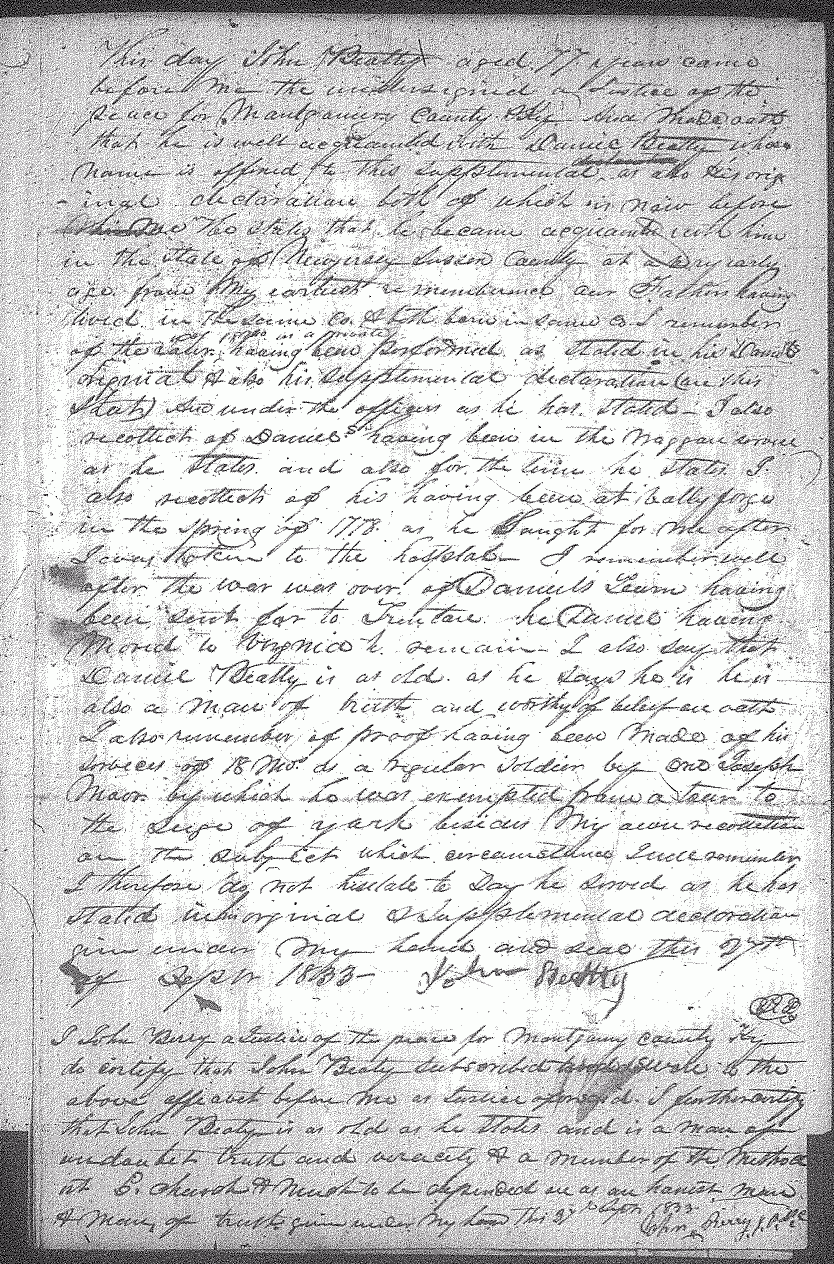 This day John Beatty aged 77 years came
before me the undersigned a Justice of the
peace for Montgomery County Ky And made oath
that he is well acquainted with Daniel Beatty whose
name is affixed to this supplemental as also his orig
- inal declaration both of which is now before
me Who States that he became acquainted with him
in the state of Newjersey Sussex County at a very early
age from my earliest remembrance our Fathers having
lived in the same Co. & both born in same Co I remember
of 18 mo as a private
of the having been performed as stated in his Daniels
original & also his supplemental declaration (on this
Shet) And under the officers as he has stated - I also
recollect of Daniels having been in the Waggon service
as he States and also for the time he states I
also recollects of his having been at vally forge
in the spring of 1778 as he Saught for me after
I was taken to the hospital - I remember well
after the war was over of Daniels Team having
been sent for to Trenton he Daniel having
moved to Virginia to remain - I also say that
Daniel Beatty is as old as he says he is he is
also a man of truth and worthy of belief on oath
I also remember of proof having been made of his
services of 18 Mo. as a regular Soldier by one Joseph
Moor by which he was exempted from a tour to
the seige of york besides my own recollection
on the subject which circumstance I well remember
I therefore do not hesitate to Say he served as he has
stated in his original & supplemental declaration
given under my hand and seal this 27th
of Septr 1833 - John Beatty
I John Berry a Justice of the peace for Montgomy county Ky
do certify that John Beaty subscribed and Swore to the
above affidavit before me as Justice aforesaid. I further certify
that John Beaty is as old as he states and is a man of
undoubted truth and veracity & a member of the Method
ist E. church & much to be depended on as an honest man
& man of truth given under my hand this 27th Septr 1833
John Berry J.P.